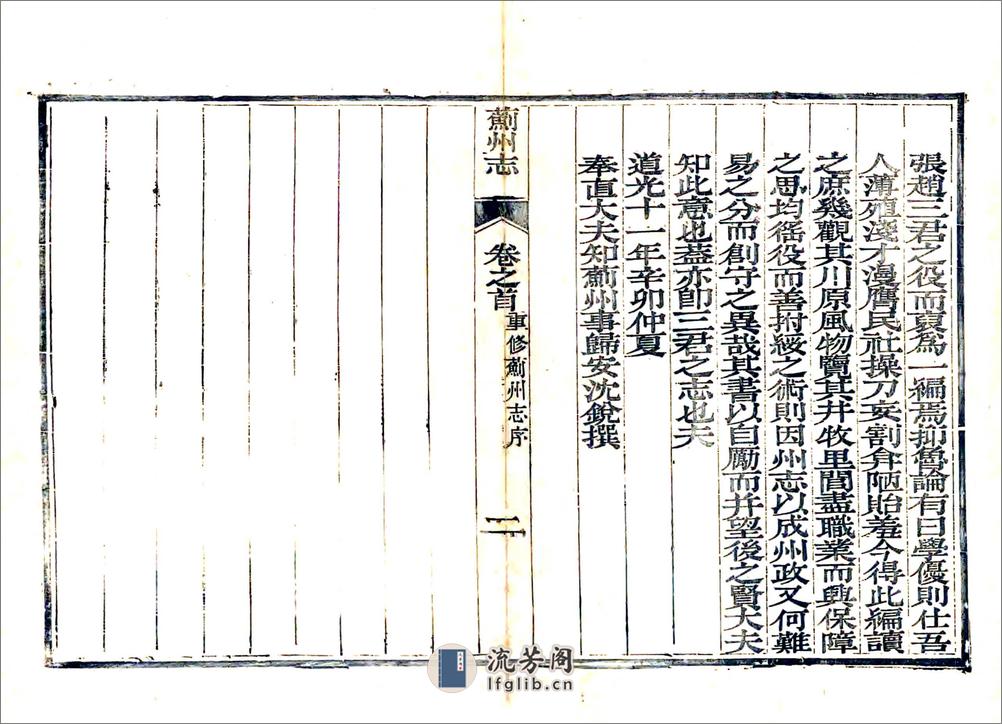 張趙三君之役而裒爲一編焉抑魯論有曰學優則仕吾
人薄殖淺才漫膺民社操刀妄割弇陋貽羞今得此編讀
之庶幾觀其川原風物覽其井牧里閭盡職業而興保障
之思均徭役而善拊綏之術則因州志以成州政又何難
易之分而創守之異哉其書以自勵而并望後之賢大夫
知此意也蓋亦卽三君之志也夫
道光十一年辛卯仲夏
奉直大夫知薊州事歸安沈銳撰
薊州志
卷之首
重修薊州志序
二
流芳阁
lfglib.cn